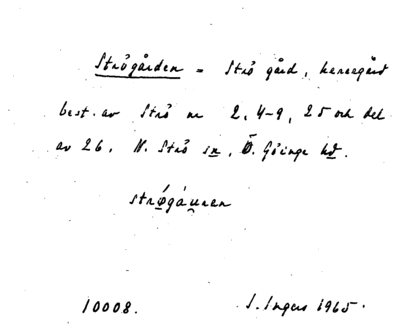 Strögården = Strö gård, herregård
best. av Strö nr 2, 4-9, 25 och del
av 26, N. Strö sn, Ö. Göinge hd.
strǿgá u̯nen
10008. I. Ingers 1965.